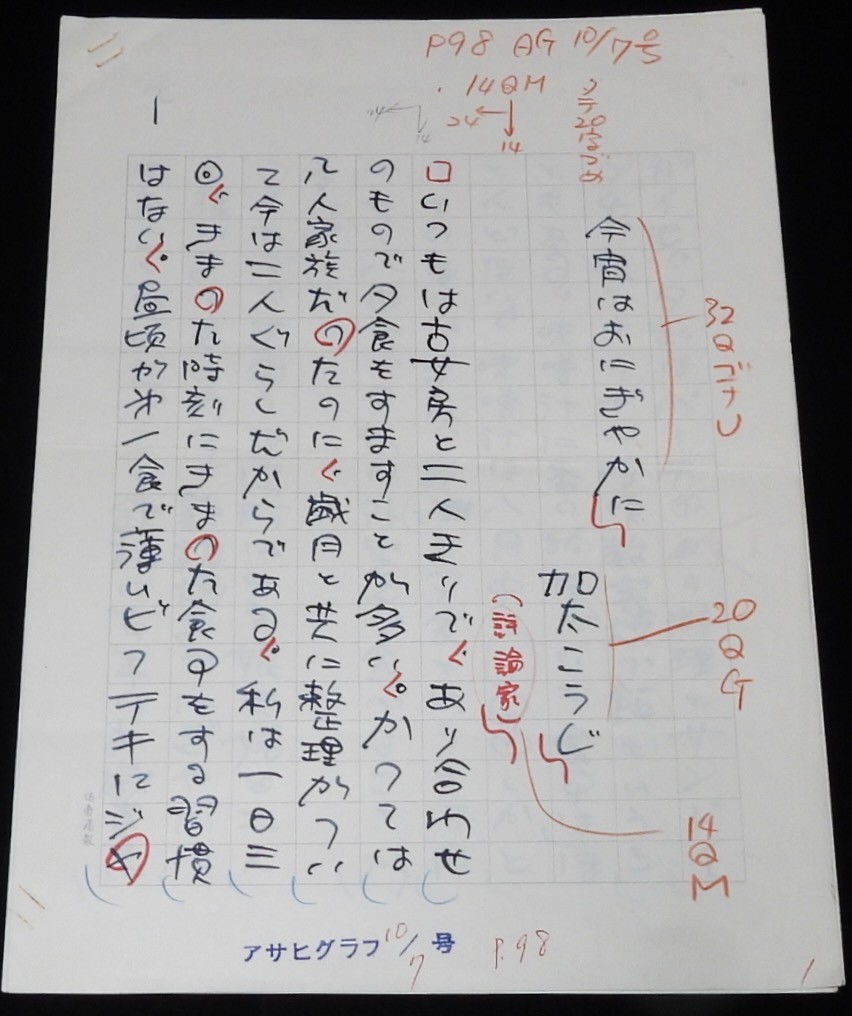 P98 AG 10/7号
14QM
24
14
14
14
1
今宵はおにぎやかに
32Q
加太こうじ
20QG
(評論家)
14QM
いつもは古女房と二人きりで、あり合わせ
のもので夕食をすますことが多い。かつては
八人家族だったのに、歳月と共に整理がつい
て今は二人ぐらしだからである。私は一日三
回、きまった時刻にきまった食事をする習慣
はない。昼頃か第一食で薄いビフテキにジャ
アサヒグラフ10/7号 P.98
1